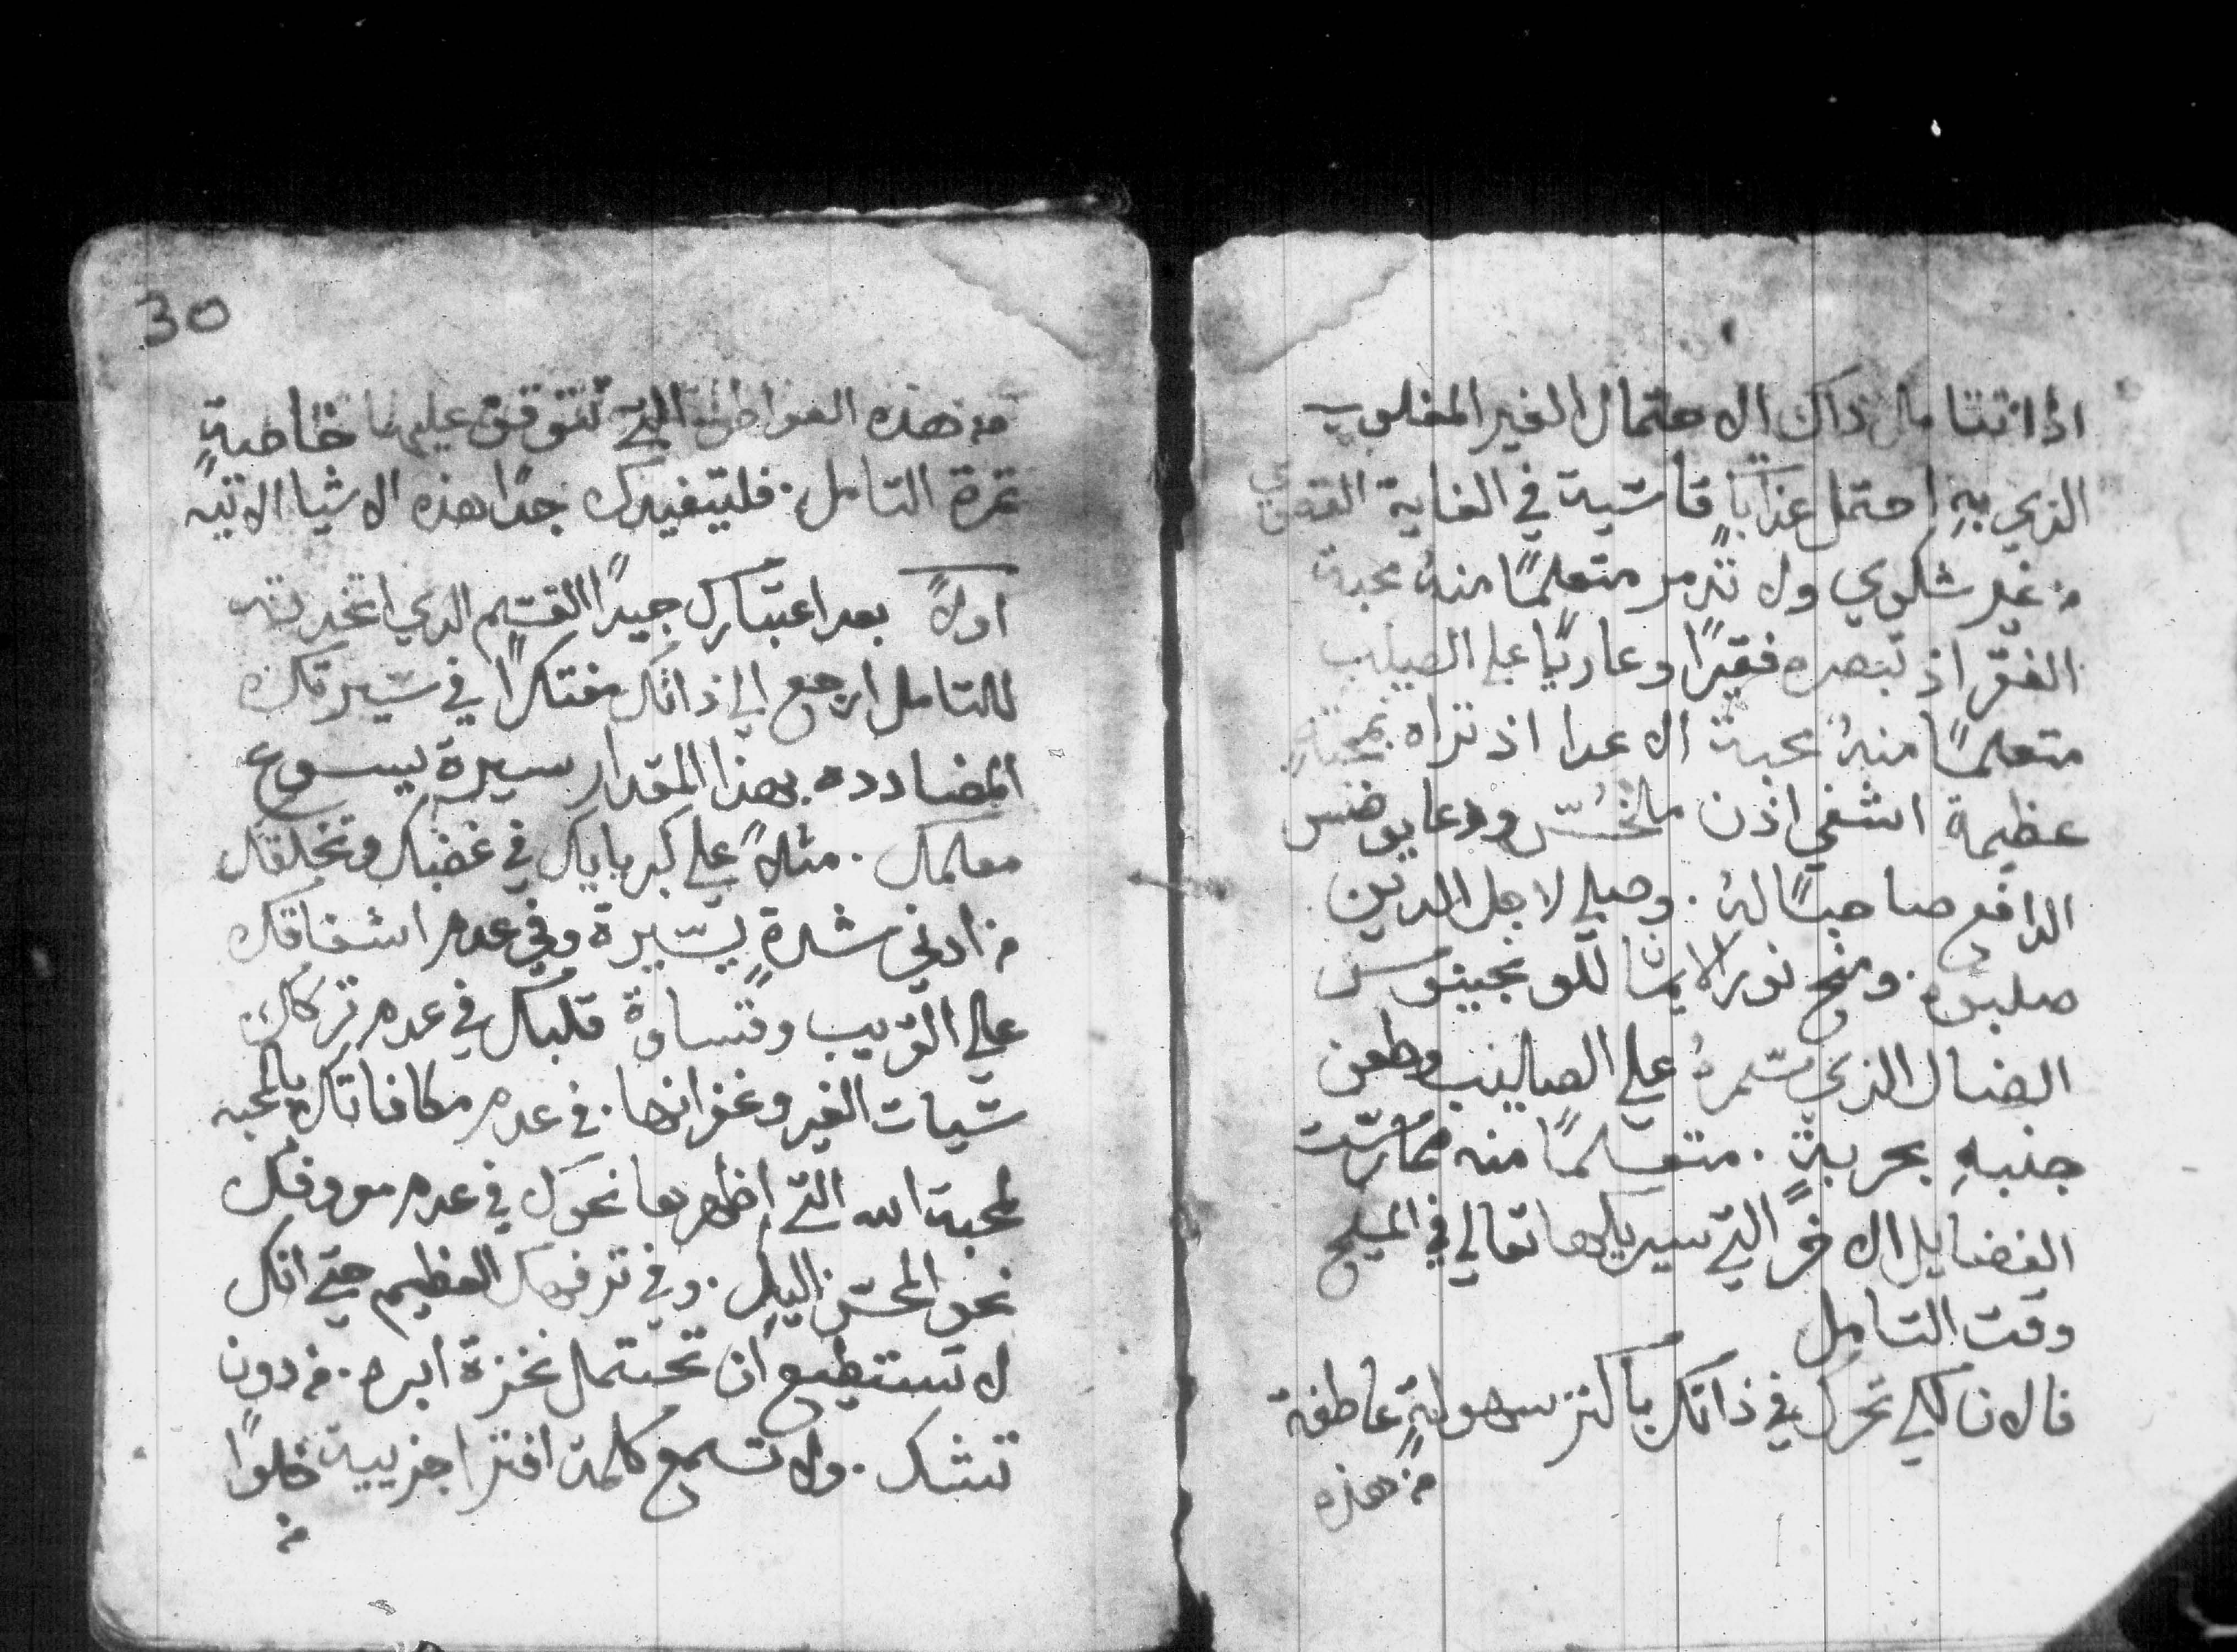 اذا تتامل ذاك الاحتمال الغير المغلوب
الذي به احتمل عذابًا قاسية في الغاية القصوي
من غير شكوي ولا تذمر متعلمًا منهُ محبة
الفقر اذ تبصره فقيرًا وعاريًا علي الصليب
متعلمًا منهُ محبة الاعدا اذ تراه
عظيمة اشفي اذن ملخُس ودعا يوضس
الدافع صاحبًا لهُ. وصلي لاجل الذين
صلبوه. ومنح نور الايمان للونجينوس
الضال الذي سمرهُ علي الصليب وطعن
جنبهِ بحربةٍ. متعلمًا منه ممارست
الفضايل الاخر التي سيريكها تعالي في المسيح
وقت التامل
فالان لكي تحرك في ذاتك باكثر سهولةٍ عاطفة
من هذه
30
من هذه العواطف التي تتوقف عليها خاصةً
ثمرة التامل. فليتفيدك جدًا هذه الاشيا الاتيه
اولاً بعد اعتبارك جيدًا القسم الذي اتخدته
للتامل ارجع الي ذاتك مفتكرًا في سيرتك
المضادده بهذا المقدار سيرة يسوع
معلمك. مثلاً علي كبريايك في غضبك وتخلقك
من ادني شدةٍ يسيرة وفي عدم اشفاقك
علي القريب وقساوة قلبك في عدم تركك
سيات الغير وغفرانها. في عدم مكافاتك بالمحبه
لمحبة الله التي اظهرها نحوك في عدم معروفك
نحو المحسن اليك. وفي ترفهك العظيم حتي انك
لا تستطيع ان تحتمل نخزة ابره. من دون
تشك. ولا تسمع كلمة افترا جزيية خلوًا
من